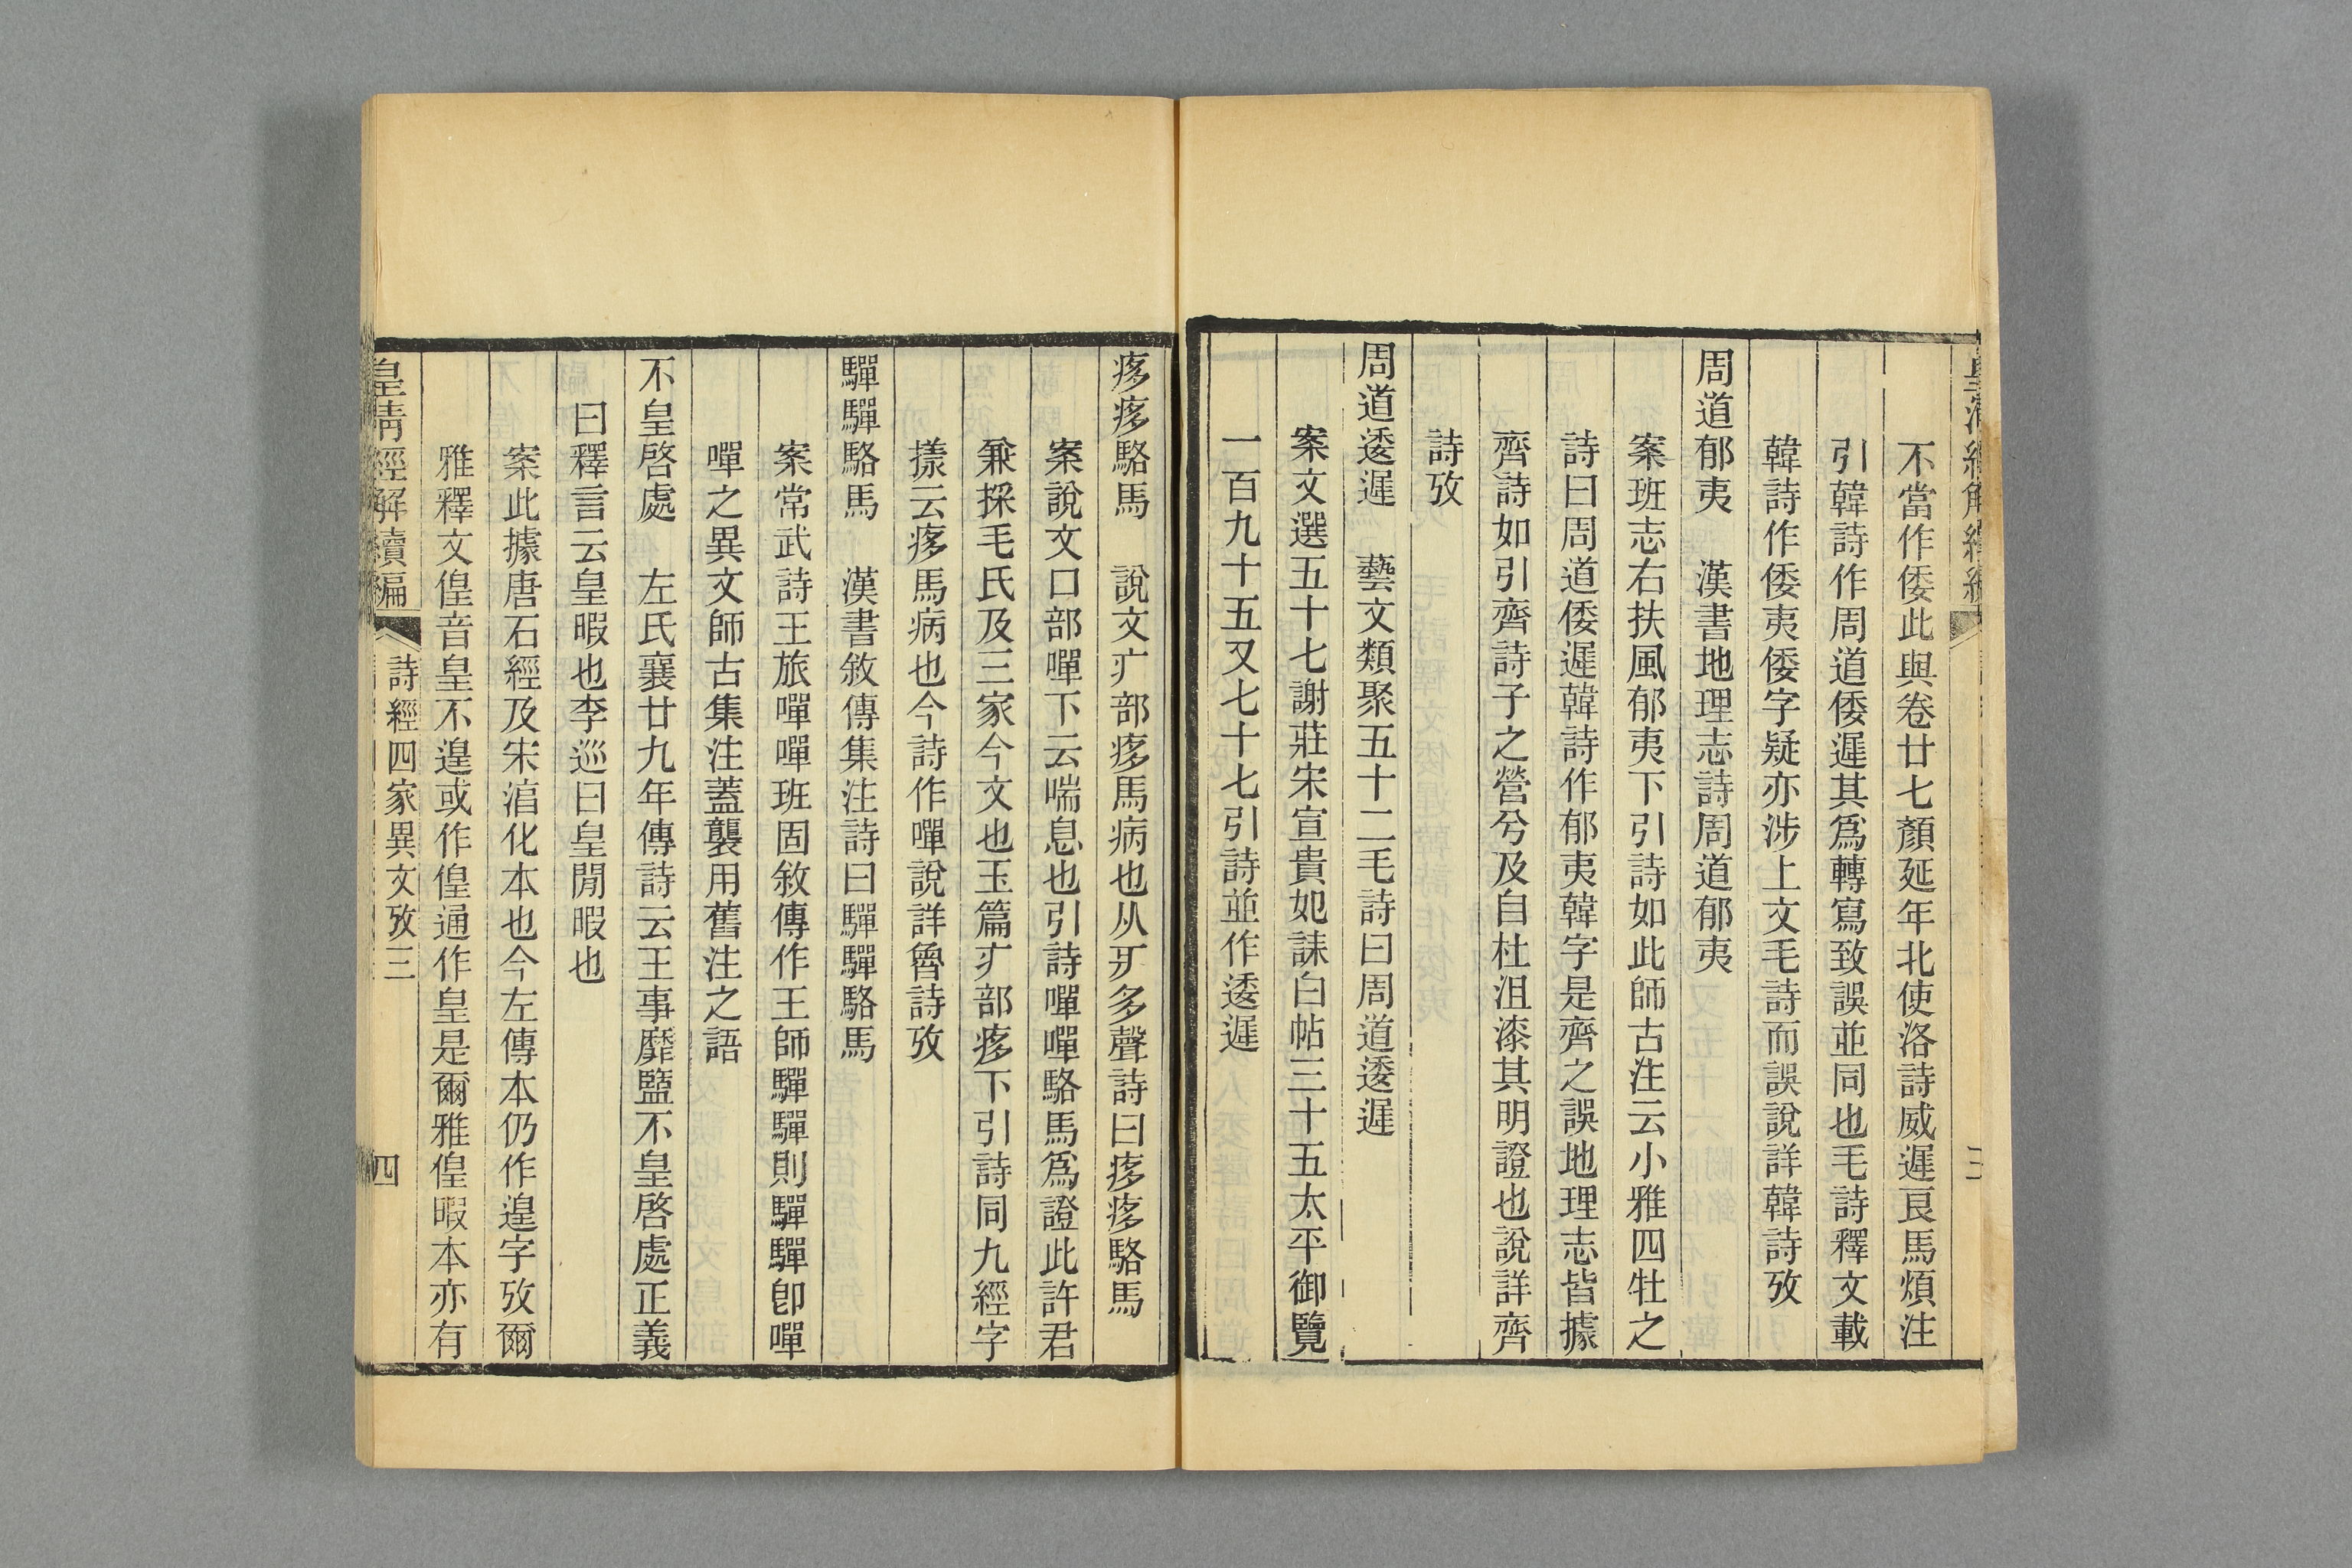 不當作倭此與卷廿七顏延年北使洛詩威遲良馬煩注
引韓詩作周道倭遲其爲轉寫致誤並同也毛詩釋文載
韓詩作倭夷倭字疑亦涉上文毛詩而誤說詳韓詩攷
周道郁夷　漢書地理志詩周道郁夷
案班志右扶風郁夷下引詩如此師古注云小雅四牡之
詩曰周道倭遲韓詩作郁夷韓字是齊之誤地理志皆據
齊詩如引齊詩子之營兮及自杜沮漆其明證也說詳齊
詩攷
周道逶遲　藝文類聚五十二毛詩曰周道逶遲
案文選五十七謝莊宋宣貴妃誄白帖三十五太平御覽
一百九十五又七十七引詩並作逶遲
痑痑駱馬　說文疒部痑馬病也从疒多聲詩曰痑痑駱馬
案說文口部嘽下云喘息也引詩嘽嘽駱馬爲證此許君
兼採毛氏及三家今文也玉篇疒部痑下引詩同九經字
㨾云痑馬病也今詩作嘽說詳魯詩攷
驒驒駱馬　漢書敘傳集注詩曰驒驒駱馬
案常武詩王旅嘽嘽班固敘傳作王師驒驒則驒驒卽嘽
嘽之異文師古集注蓋襲用舊注之語
不皇啓處　左氏襄廿九年傳詩云王事靡盬不皇啓處正義
曰釋言云皇暇也李巡曰皇閒暇也
案此據唐石經及宋湻化本也今左傳本仍作遑字攷爾
雅釋文偟音皇不遑或作偟通作皇是爾雅偟暇本亦有
皇清經解續編
詩經四家異文攷三
四